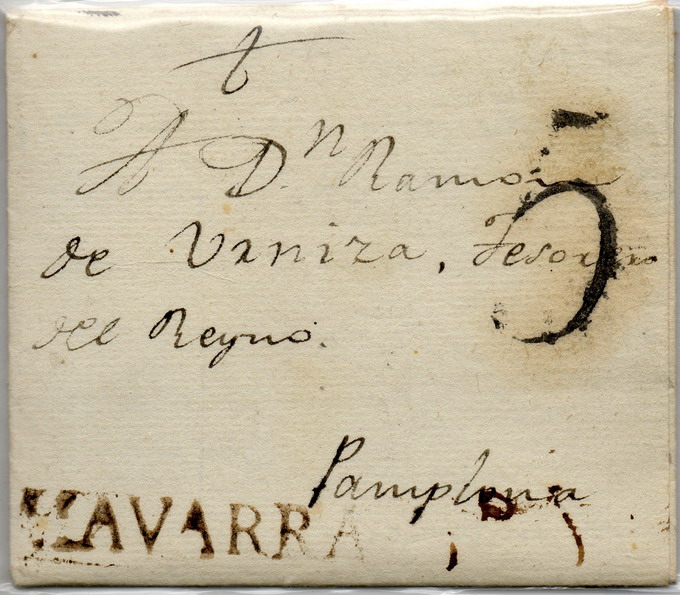 A D.n Ramon
5
de Vrniza, Tesorero
del Reyno.
Pamplona
NAVARRA